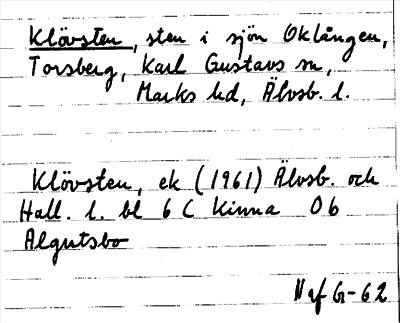 Klövsten, sten i sjön Oklången,
Torsberg, Karl Gustavs sn,
Marks hd, Älvsb. l.
Klövsten, ek (1961) Älvsb. och
Hall. l. bl 6 C Kinna 0b
Algutsbo
Naf G-62